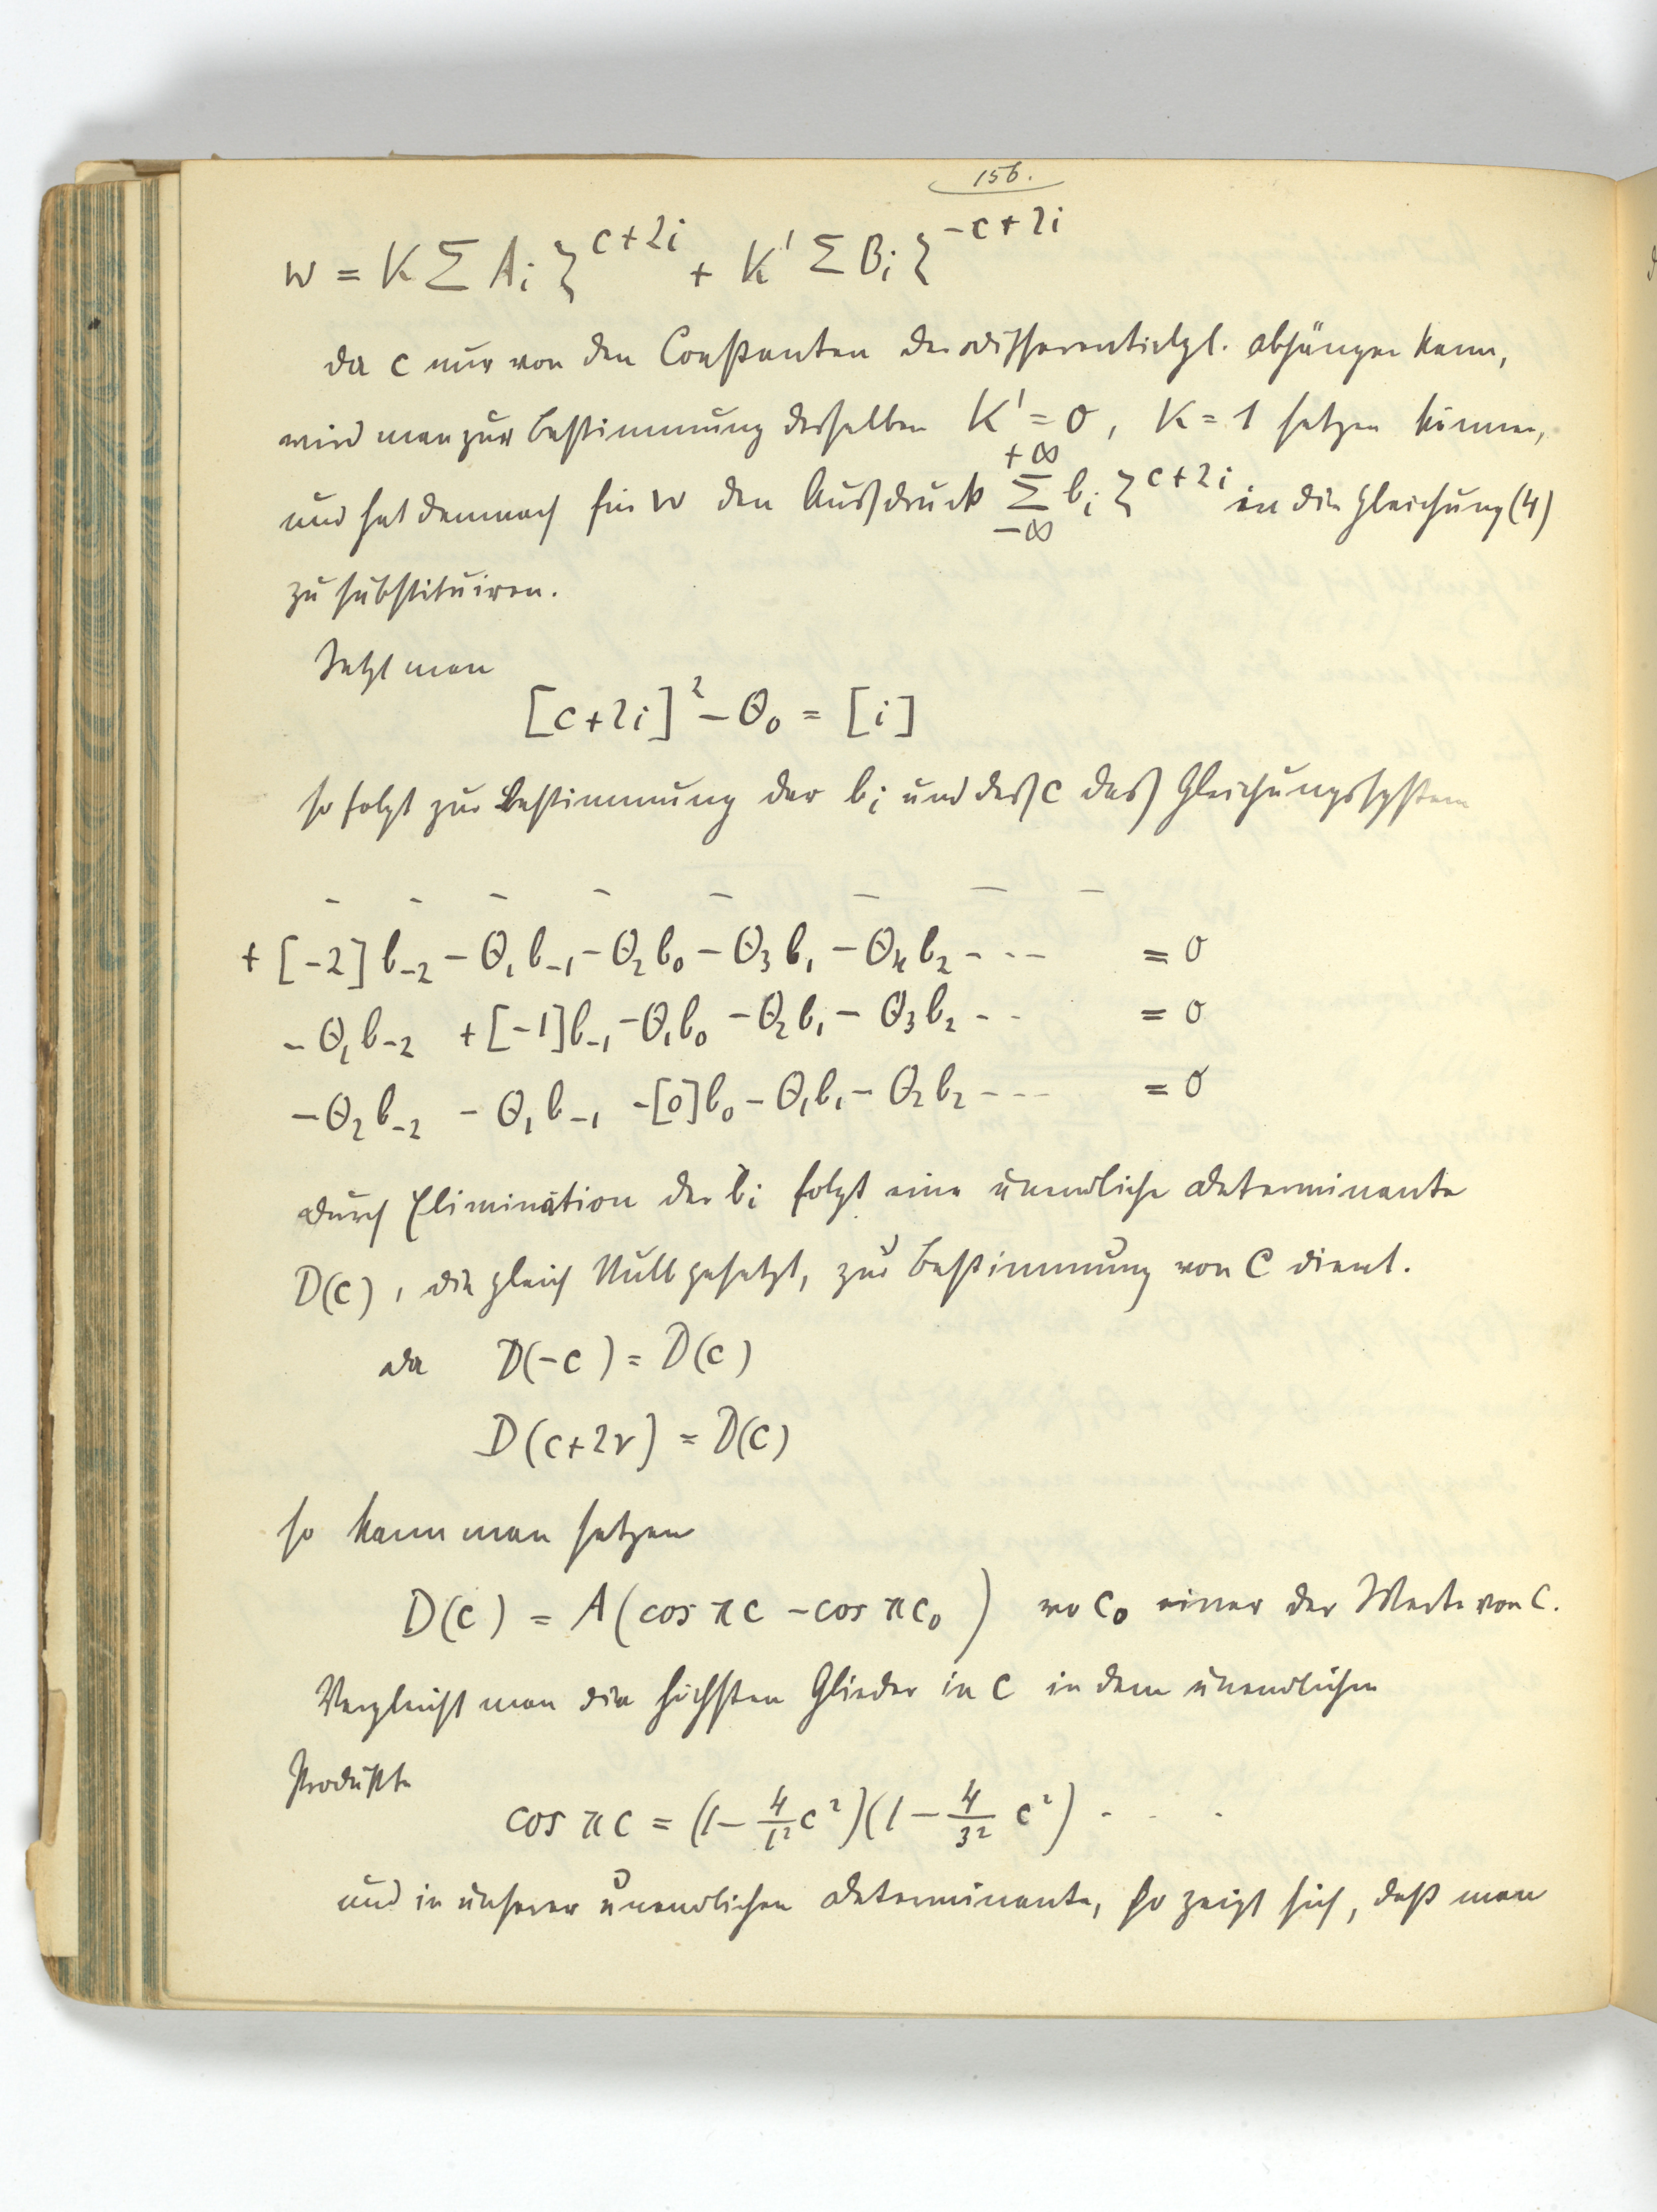 156.
w = K Σ A_i ζ^{c+2i} + K' Σ B_i ζ^{-c+2i}
Da c nur von den Constanten der Differentialgl. abhängen kann,
wird man zur Bestimmung desselben K' = 0, K = 1 setzen können,
und hat demnach für w den Ausdruck Σ_{-∞}^{+∞} b_i ζ^{c+2i} in die Gleichung (4)
zu substituiren.
Setzt man
[c+2i]² - Θ_0 = [i]
so folgt zur Bestimmung der b_i und des c das Gleichungssystem
- - - - - - - -
+ [-2] b_{-2} - Θ_1 b_{-1} - Θ_2 b_0 - Θ_3 b_1 - Θ_4 b_2 - - - = 0
- Θ_1 b_{-2} + [-1] b_{-1} - Θ_1 b_0 - Θ_2 b_1 - Θ_3 b_2 - - = 0
- Θ_2 b_{-2} - Θ_1 b_{-1} - [0] b_0 - Θ_1 b_1 - Θ_2 b_2 - - - = 0
Durch Elimination der b_i folgt eine unendliche Determinante
D(c), die gleich Null gesetzt, zur Bestimmung von c dient.
Da D(-c) = D(c)
D(c+2ν) = D(c)
so kann man setzen
D(c) = A(cos πc - cos πc_0) wo c_0 einer der Werte von c.
Vergleicht man die höchsten Glieder in c in dem unendlichen
Produkte
cos πc = (1 - 4/1² c²)(1 - 4/3² c²) - - -
und in unserer unendlichen Determinante, so zeigt sich, daß man